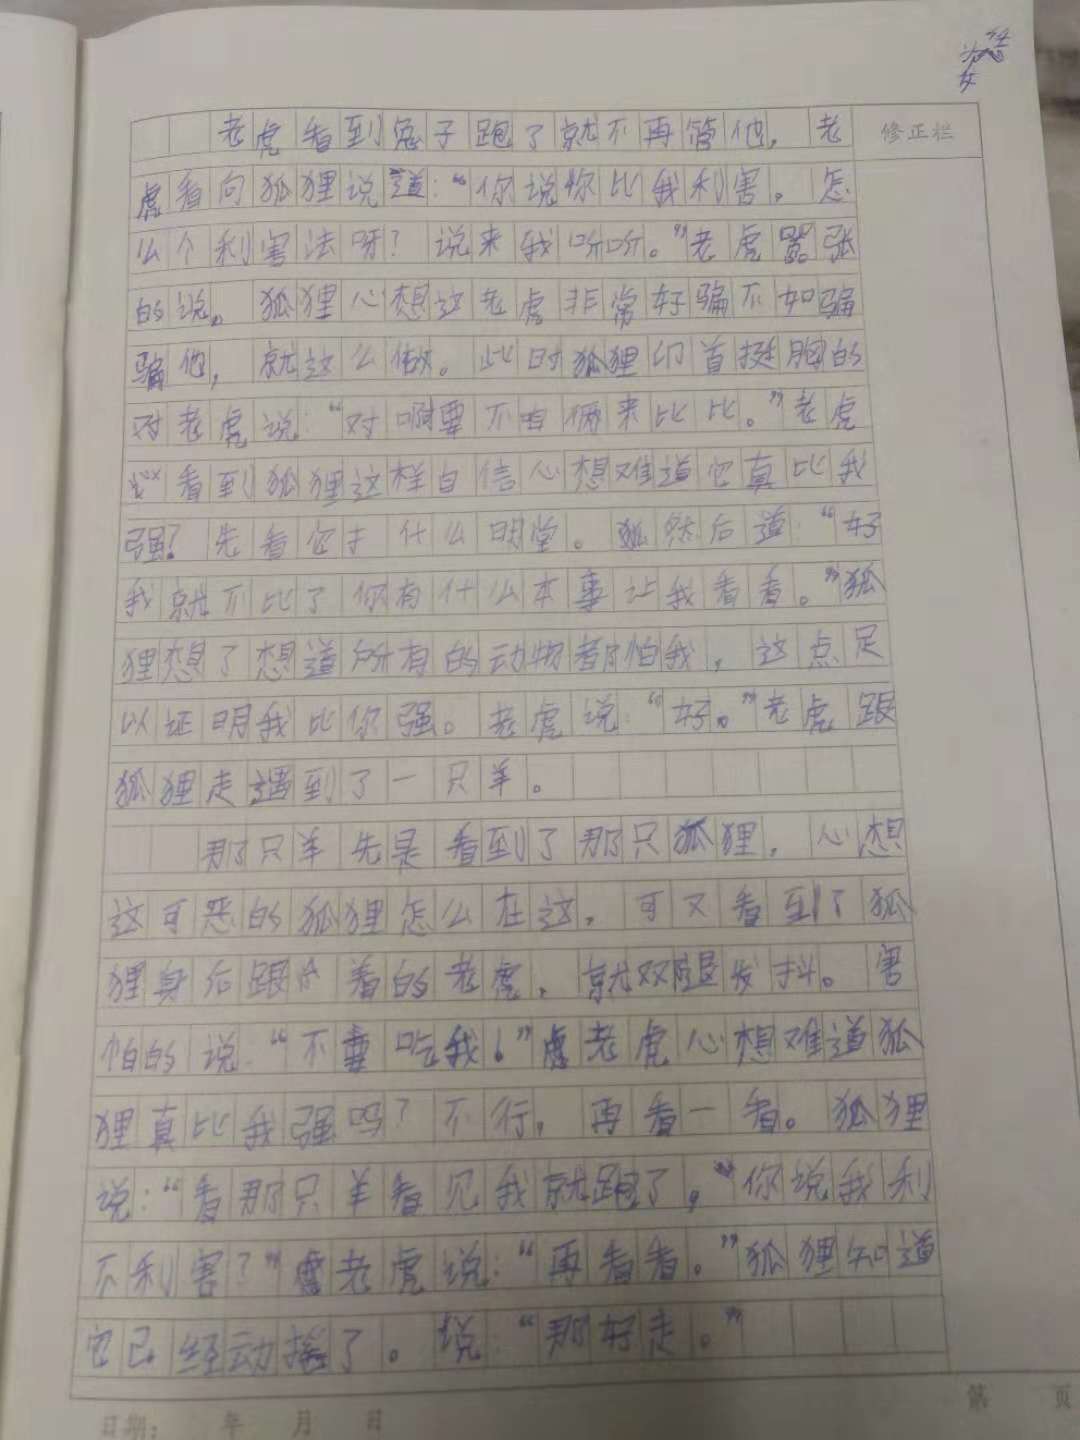 老虎看到兔子跑了就不再管他，老
修正栏
虎看向狐狸说道：“你说你比我利害。怎
么个利害法呀？说来我听听。”老虎嚣张
的说。狐狸心想这老虎非常好骗不如骗
骗他，就这么做。此时狐狸卬首挺胸的
对老虎说：“对啊要不咱俩来比比。”老虎
看到狐狸这样自信心想难道它真比我
强？先看它才什么明堂。狐然后道：“好
我就不比了你有什么本事让我看看。”狐
狸想了想道所有的动物都怕我，这点足
以证明我比你强。老虎说：“好。”老虎跟
狐狸走遇到了一只羊。
那只羊先是看到了那只狐狸，心想
这可恶的狐狸怎么在这，可又看到了狐
狸身后跟着的老虎，就双腿发抖。害
怕的说：“不要吃我！”老虎心想难道狐
狸真比我强吗？不行，再看一看。狐狸
说：“看那只羊看见我就跑了，“你说我利
不利害？”老虎说：“再看看。”狐狸知道
它已经动摇了。说：“那好走。”
第 页
日期： 年 月 日